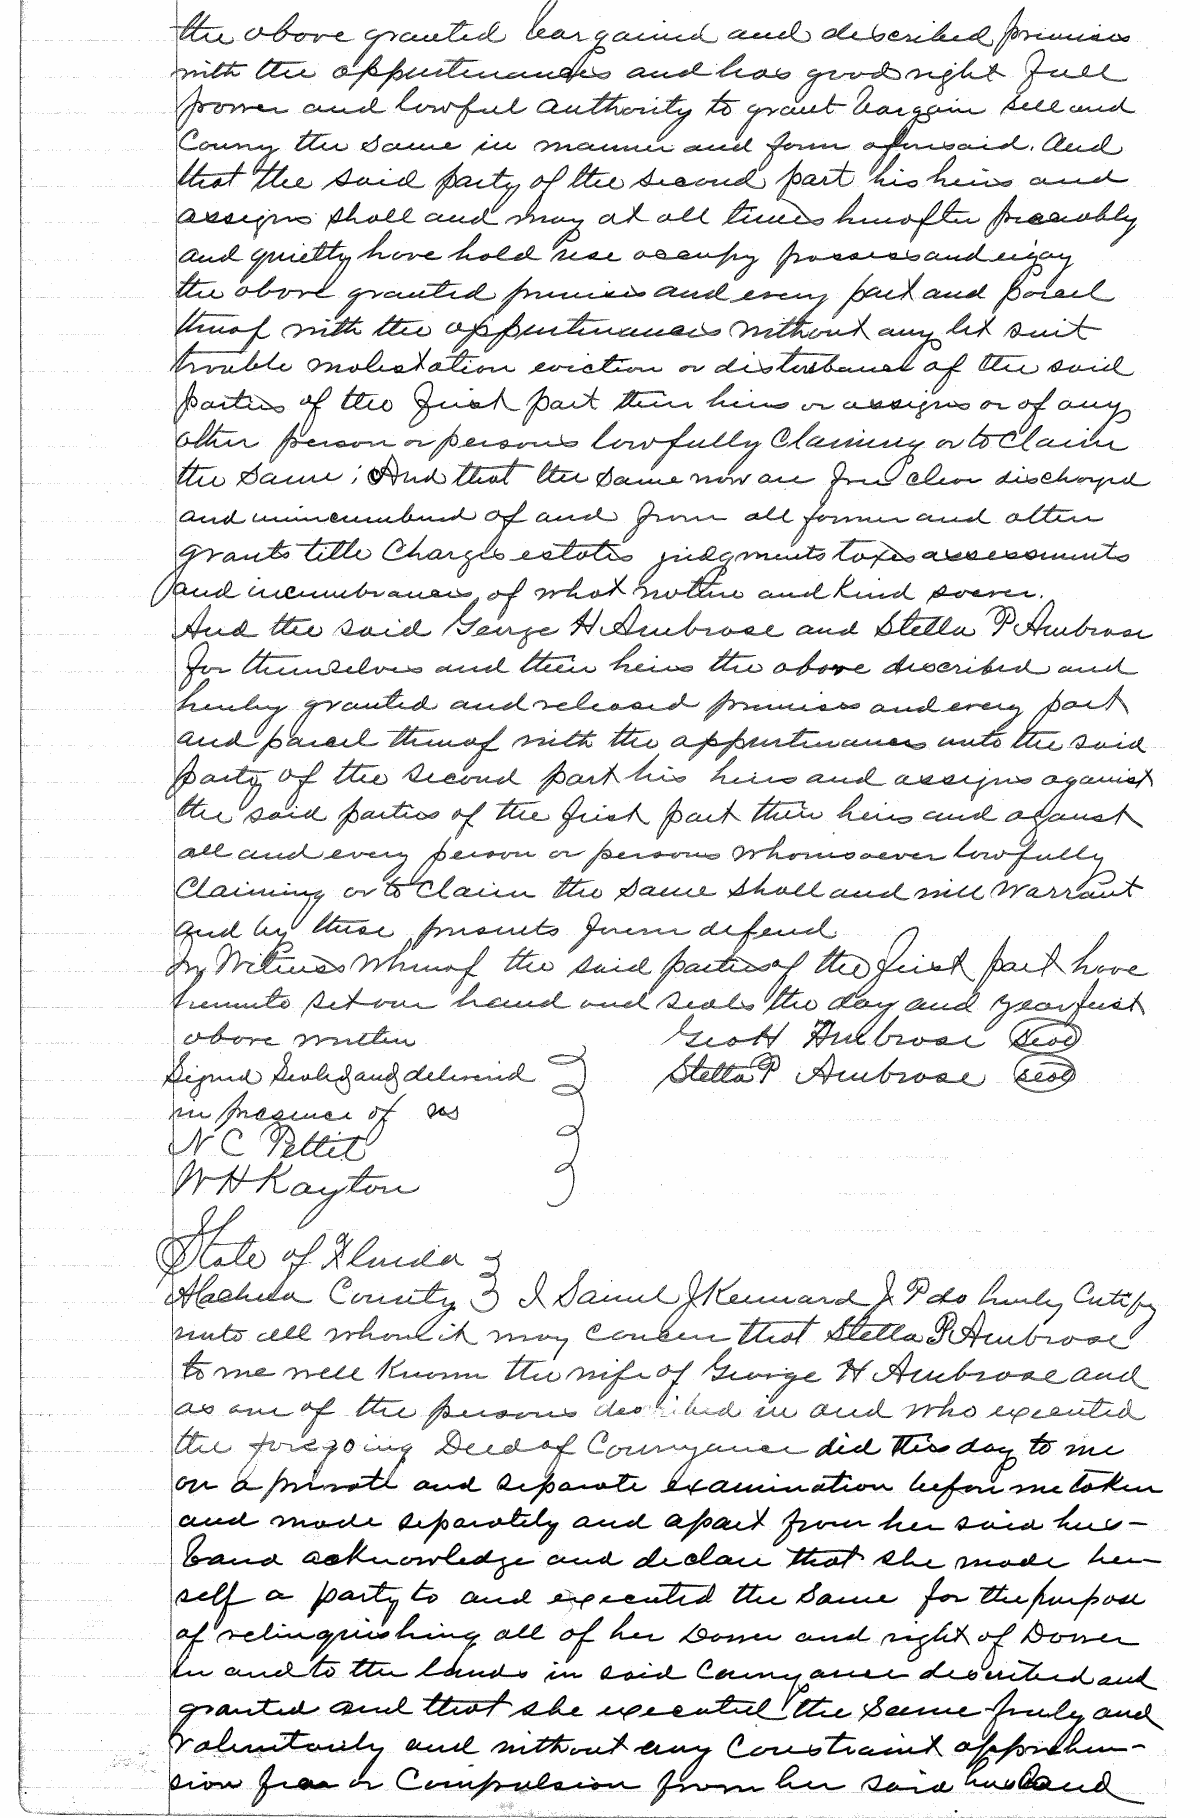 the above granted bargained and described premises
with the appurtenances and has good right full
power and lawful authority to grant bargain sell and
Convey the same in manner and form aforesaid. And
that the said party of the second part his heirs and
assigns shall and may at all times hereafter peaceably
and quietly have hold use occupy possess and enjoy
the above granted premises and every part and parcel
thereof with the appurtenances without any let suit
trouble molestation eviction or disturbance of the said
parties of the first part their heirs or assigns or of any
other person or persons lawfully Claiming or to Claim
the same; And that the same now are free clear discharged
and unincumbered of and from all former and other
grants title Charges estates judgments taxes assessments
and incumbrances of what nature and kind soever.
And the said George H Ambrose and Stella P Ambrose
for themselves and their heirs the above described and
hereby granted and released premises and every part
and parcel thereof with the appurtenances unto the said
party of the second part his heirs and assigns against
the said parties of the first part their heirs and against
all and every person or persons whomsoever lawfully
Claiming or to Claim the same shall and will Warrant
and by these presents forever defend
In Witness Whereof the said parties of the first part have
hereunto set our hand and seals the day and year first
above written Geo H Ambrose Seal
Signed Sealed and delivered Stella P Ambrose seal
in presence of us
N C Pettit
W H Kayton
State of Florida
Alachua County I Samuel J Kennard J P do hereby Certify
unto all whom it may concern that Stella P Ambrose
to me well known the wife of George H Ambrose and
as one of the persons described in and who executed
the foregoing Deed of Conveyance did this day to me
on a private and separate examination before me taken
and made separately and apart from her said hus-
band acknowledge and declare that she made her
self a party to and executed the same for the purpose
of relinquishing all of her Dower and right of Dower
in and to the lands in said Conveyance described and
granted and that she executed the same freely and
voluntarily and without any Constraint apprehen-
sion fear or Compulsion from her said husband